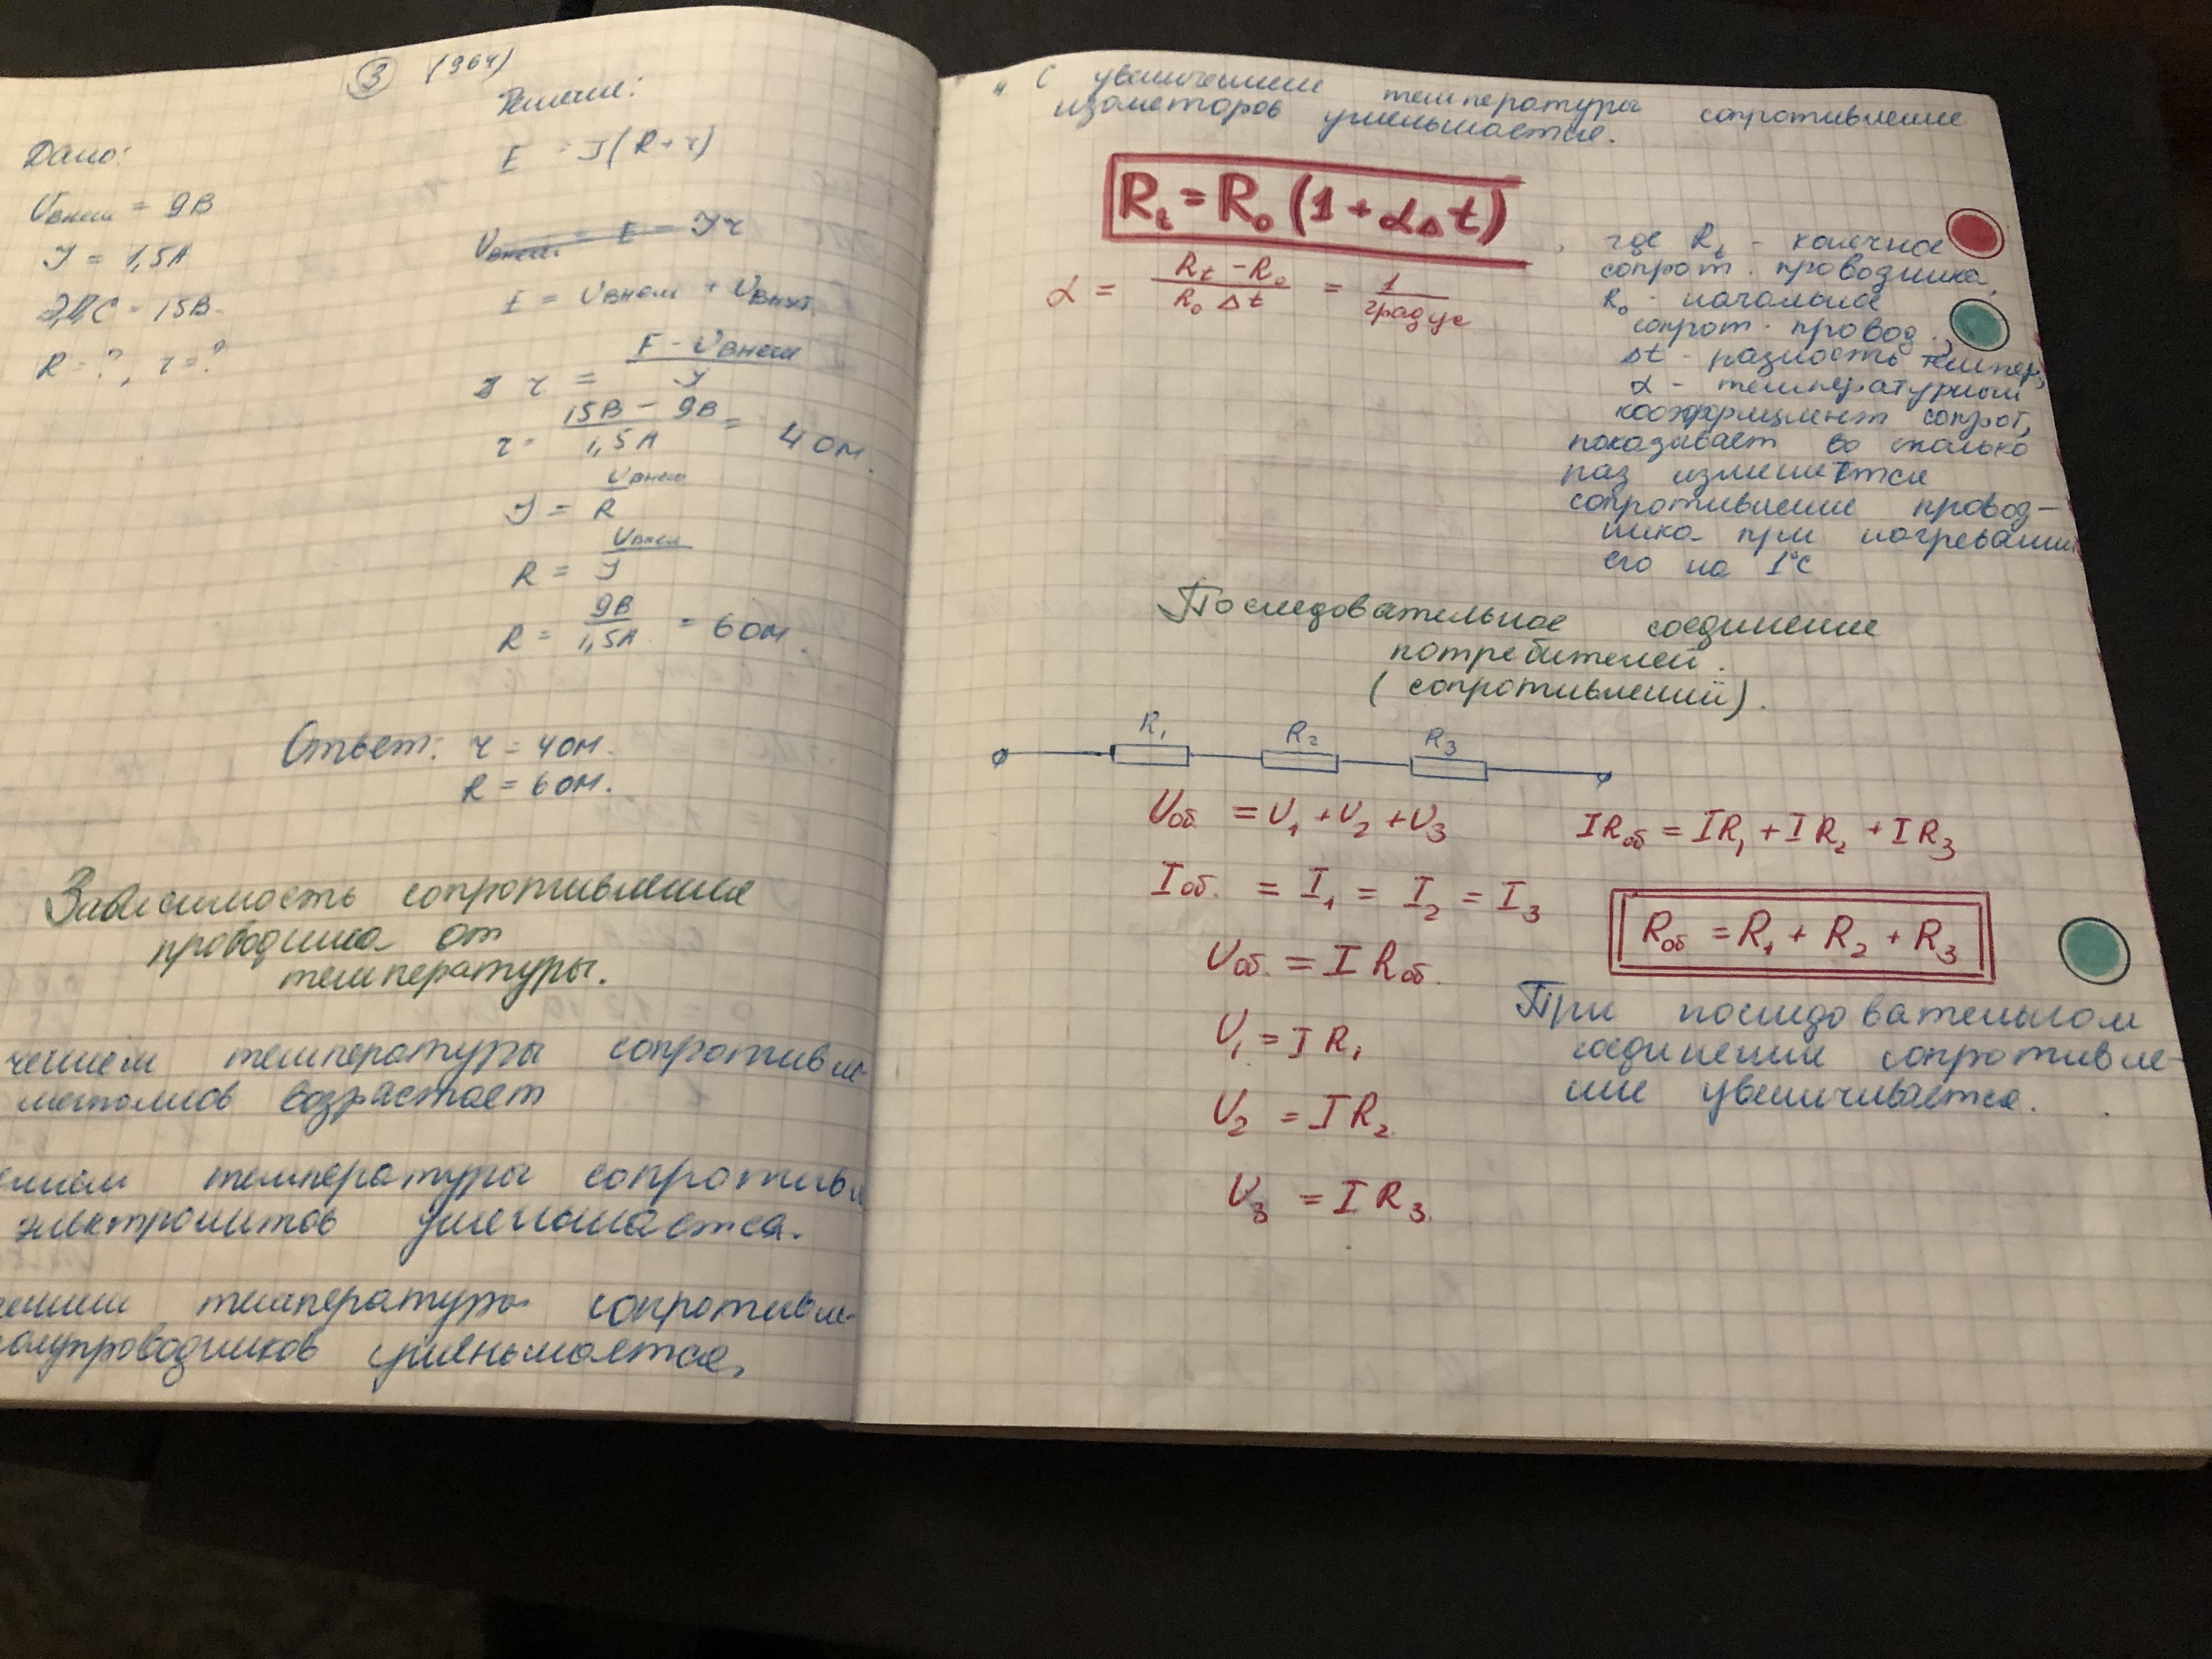 3 (964)
Решение:
Дано:
Uвнеш = 9В
I = 1,5А
ЭДС = 15В.
R = ?, r = ?
E = I(R+r)
Uвнеш = E - Ir
E = Uвнеш + Uвнут.
r = E - Uвнеш / I
r = 15В - 9В / 1,5А = 4 Ом.
I = Uвнеш / R
R = Uвнеш / I
R = 9В / 1,5А = 6 Ом.
Ответ: r = 4 Ом.
R = 6 Ом.
Зависимость сопротивления
проводника от
температуры.
чением температуры сопротивле-
металлов возрастает
ением температуры сопротивл
электролитов уменьшается.
чением температуры сопротивле-
олупроводников уменьшается,
" С увеличением температуры сопротивление
изоляторов уменьшается.
Rt = R0 (1 + α∆t)
, где Rt - конечное
сопрот. проводника,
R0 - начальное
сопрот. провод.,
∆t - разность темпер,
α - температурный
коэффициент сопрот,
показывает во сколько
раз изменится
сопротивление провод-
ника при нагревании
его на 1°С
α = Rt - R0 / R0 ∆t = 1 / градус
Последовательное соединение
потребителей.
(сопротивлений).
R1 R2 R3
Uоб. = U1 + U2 + U3
IRоб = IR1 + IR2 + IR3
Iоб. = I1 = I2 = I3
Rоб = R1 + R2 + R3
Uоб. = I Rоб.
U1 = I R1
U2 = I R2
U3 = I R3.
При последовательном
соединении сопротивле-
ние увеличивается.